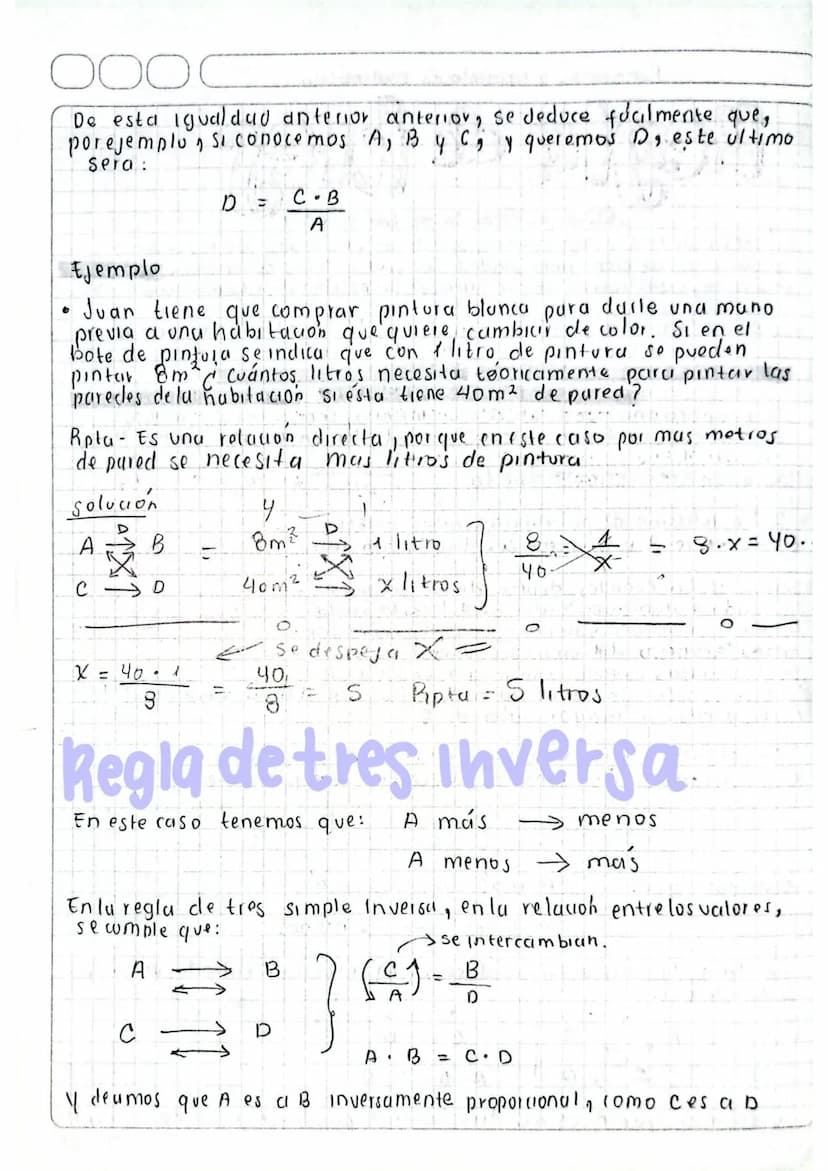 De esta igualdad anterior anterior, se deduce fácilmente que,
por ejemplo, si conocemos A, B y C, y queremos D, este último
será:
D = C · B / A
Ejemplo
• Juan tiene que comprar pintura blanca para darle una mano
previa a una habitación que quiere cambiar de color. Si en el
bote de pintura se indica que con 1 litro de pintura se pueden
pintar 8m² ¿Cuántos litros necesita teóricamente para pintar las
paredes de la habitación si ésta tiene 40m² de pared?
Rpta- Es una relación directa, porque en este caso por mas metros
de pared se necesita mas litros de pintura
solución
A →D B = 8m² →D 1 litro } 8/40 = 1/x = 8·x = 40·
C → D 40m² → x litros
← se despeja X =
X = 40·1 / 8 = 40/8 = 5 Rpta = 5 litros
Regla de tres inversa.
En este caso tenemos que: A más → menos
A menos → más
En la regla de tres simple inversa, en la relación entre los valores,
se cumple que:
→ se intercambian.
A → B } (C/A) = B/D
C → D
A · B = C · D
Y decimos que A es a B inversamente proporcional, como C es a D